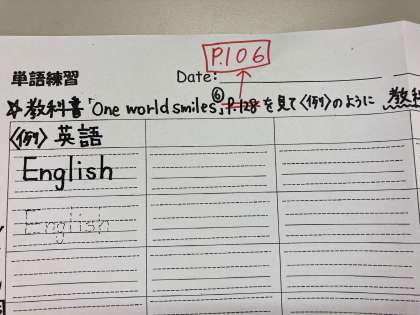 P.106
単語練習 Date:
☆教科書「One world smiles⑥」P.128を見て〈例〉のように 教科
〈例〉英語
English
English